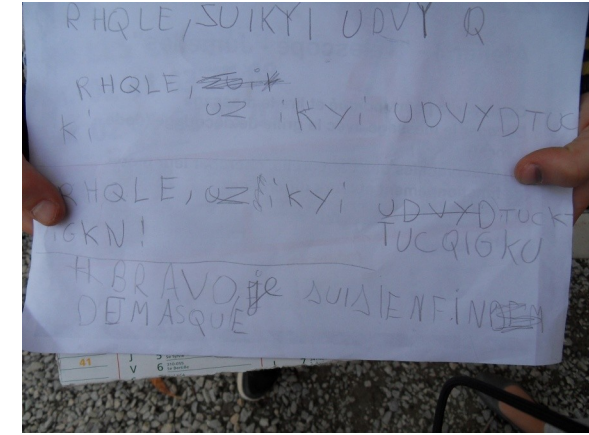 RHQLE, SUIKYI UDVY Q
RHQLE,
UZ iKYi UDVYDTUC
Ki
RHQLE, UZ iKYi UDVYDTUCKT
IGKN! TUCQIGKU
H BRAVO, je SUIS ENFIN
DEMASQUÉ
41 J 5
V 6